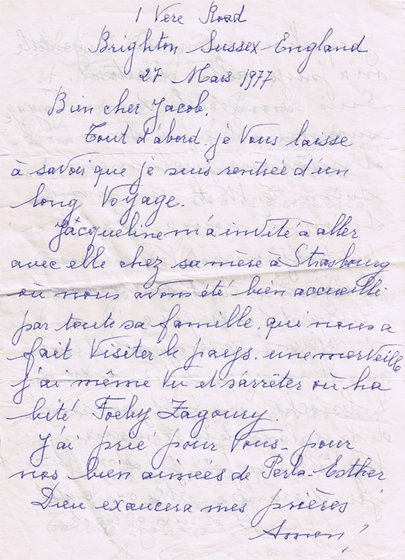 1 Vere Road
Brighton Sussex-England
27 Mars 1977
Bien cher Jacob,
Tout d'abord je vous laisse
à savoir que je suis rentrée d'un
long voyage.
Jacqueline m'a invité à aller
avec elle chez sa mère à Strasbourg
où nous avons été bien accueilli
par toute sa famille, qui nous a
fait visiter le pays. une merveille
j'ai même vu et s'arrêter où ha
bité Foeby Zagoury
J'ai prié pour vous - pour
nos bien aimées de Perla-Esther
Dieu exaucera mes prières
Amen!